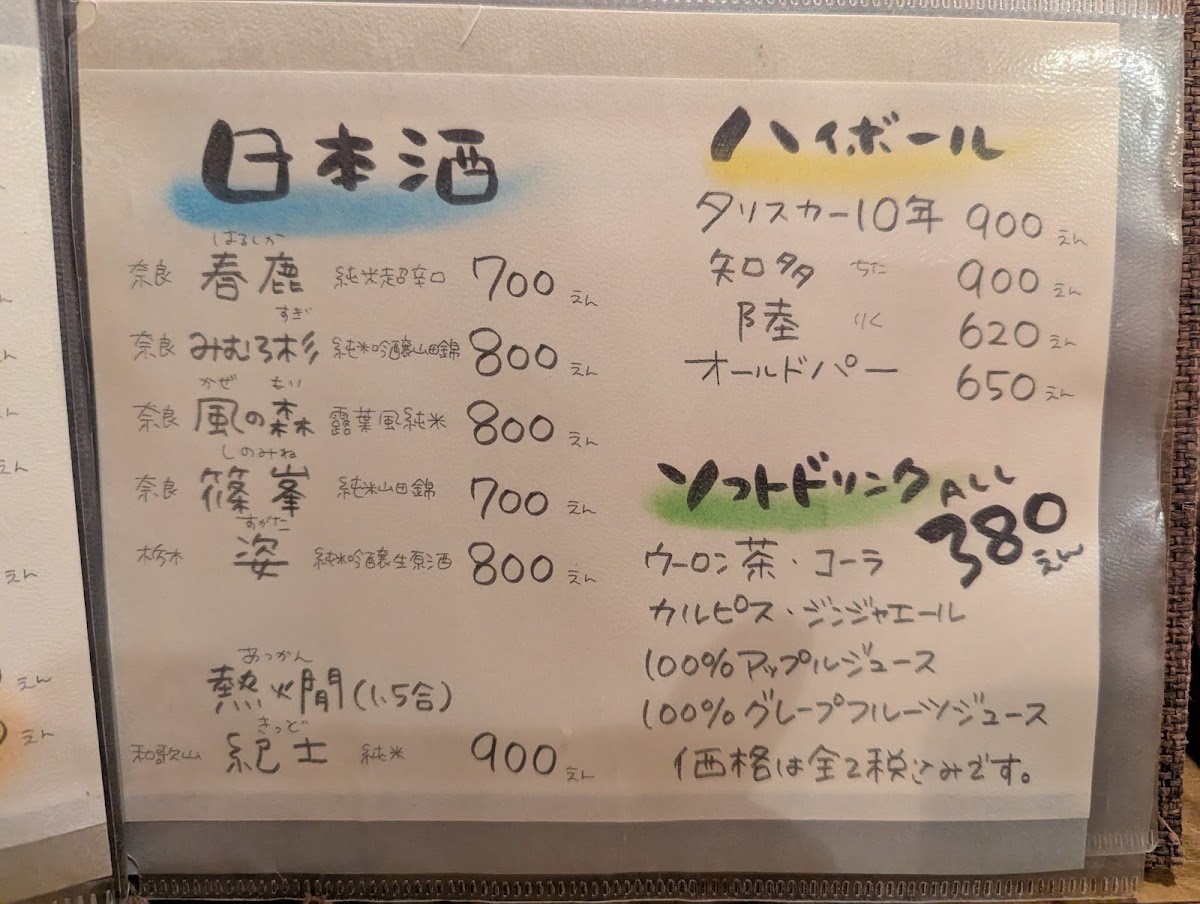 日本酒
はるしか
奈良 春鹿 純米超辛口 700えん
すぎ
奈良 みむろ杉 純米吟醸山田錦 800えん
かぜ もり
奈良 風の森 露葉風純米 800えん
しのみね
奈良 篠峯 純米山田錦 700えん
すがた
栃木 姿 純米吟醸生原酒 800えん
あつかん
熱燗(1.5合)
きっど
和歌山 紀土 純米 900えん
ハイボール
タリスカー10年 900えん
知多 ちた 900えん
陸 りく 620えん
オールドパー 650えん
ソフトドリンク ALL 380えん
ウーロン茶・コーラ
カルピス・ジンジャエール
100%アップルジュース
100%グレープフルーツジュース
価格は全て税込みです。
えん
えん
えん
えん
えん
えん